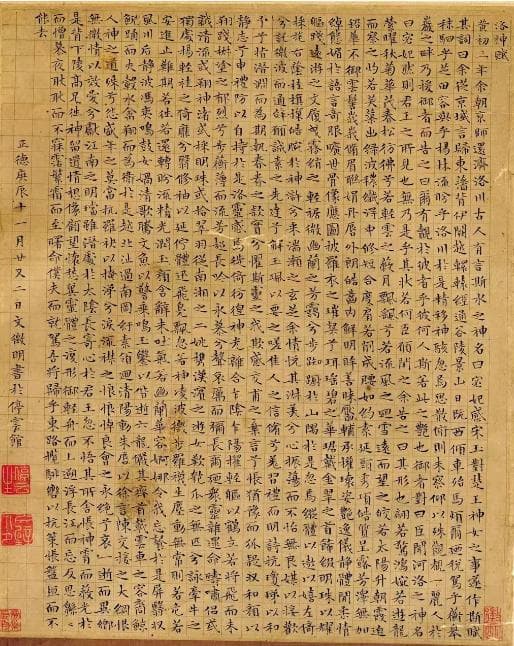 洛神賦
黃初三年余朝京師還濟洛川古人有言斯水之神名曰宓妃感宋玉對楚王神女之事遂作斯賦
其詞曰余從京域言歸東藩背伊闕越轘轅經通谷陵景山日既西傾車殆馬煩爾迺稅駕乎蘅皋
秣駟乎芝田容與乎楊林流眄乎洛川於是精移神駭忽焉思散俯則未察仰以殊觀覩一麗人於
巖之畔乃援御者而告之曰爾有覿於彼者乎彼何人斯若此之艷也御者對曰臣聞河洛之神名
曰宓妃然則君王之所見也無乃是乎其狀若何臣願聞之余告之曰其形也翩若驚鴻婉若遊龍
榮曜秋菊華茂春松彷彿兮若輕雲之蔽月飄飖兮若流風之迴雪遠而望之皎若太陽升朝霞迫
而察之灼若芙蕖出綠波穠纖得中修短合度肩若削成腰如約素延頸秀項皓質呈露芳澤無加
鉛華不御雲髻峩峩修眉聯娟丹唇外朗皓齒內鮮明眸善睞靨輔承權瓌姿艷逸儀靜體閑柔情
綽態媚於語言奇服曠世骨像應圖披羅衣之璀粲兮珥瑤碧之華琚戴金翠之首飾綴明珠以耀
軀踐遠遊之文履曳霧綃之輕裾微幽蘭之芳藹兮步踟躕於山隅於是忽焉縱體以遨以嬉左倚
采旄右蔭桂旗攘皓腕於神滸兮采湍瀨之玄芝余情悅其淑美兮心振蕩而不怡無良媒以接歡
兮託微波而通辭願誠素之先達兮解玉珮以要之嗟佳人之信脩兮羌習禮而明詩抗瓊珶以和
予兮指潛淵而為期執眷眷之款實兮懼斯靈之我欺感交甫之棄言兮悵猶豫而狐疑收和顏以
靜志兮申禮防以自持於是洛靈感焉徙倚彷徨神光離合乍陰乍陽擢輕軀以鶴立若將飛而未
翔踐椒塗之郁烈兮步蘅薄而流芳超長吟以永慕兮聲哀厲而彌長爾迺衆靈雜遝命疇嘯侶或
戲清流或翔神渚或採明珠或拾翠羽從南湘之二妃携漢濱之遊女歎匏瓜之無匹兮詠牽牛之
獨處揚輕袿之倚靡兮翳修袖以延佇體迅飛鳧飄忽若神凌波微步羅襪生塵動無常則若危若
安進止難期若往若還轉眄流精光潤玉顏含辭未吐氣若幽蘭華容婀娜令我忘餐於是屏翳收
風川后靜波馮夷鳴鼓女媧清歌騰文魚以警乘鳴玉鸞以偕逝六龍儼其齊首載雲車之容裔鯨
鯢踊而夾轂水禽翔而為衛於是越北沚過南岡紆素領迴清陽動朱唇以徐言陳交接之大綱恨
人神之道殊兮怨盛年之莫當抗羅袂以掩涕兮淚流襟之浪浪悼良會之永絕兮哀一逝而異鄉
無微情以效愛兮獻江南之明璫雖潛處於太陰長寄心於君王忽不悟其所舍悵神霄而蔽光於
是背下陵高足往神留遺情想像顧望懷愁冀靈體之復形御輕舟而上遡浮長江而忘反思緜緜
而增慕夜耿耿而不寐霑繁霜而至曙命僕夫而就駕吾將歸乎東路攬騑轡以抗策悵盤桓而不
能去
正德庚辰十一月廿又二日文徵明書於停雲館